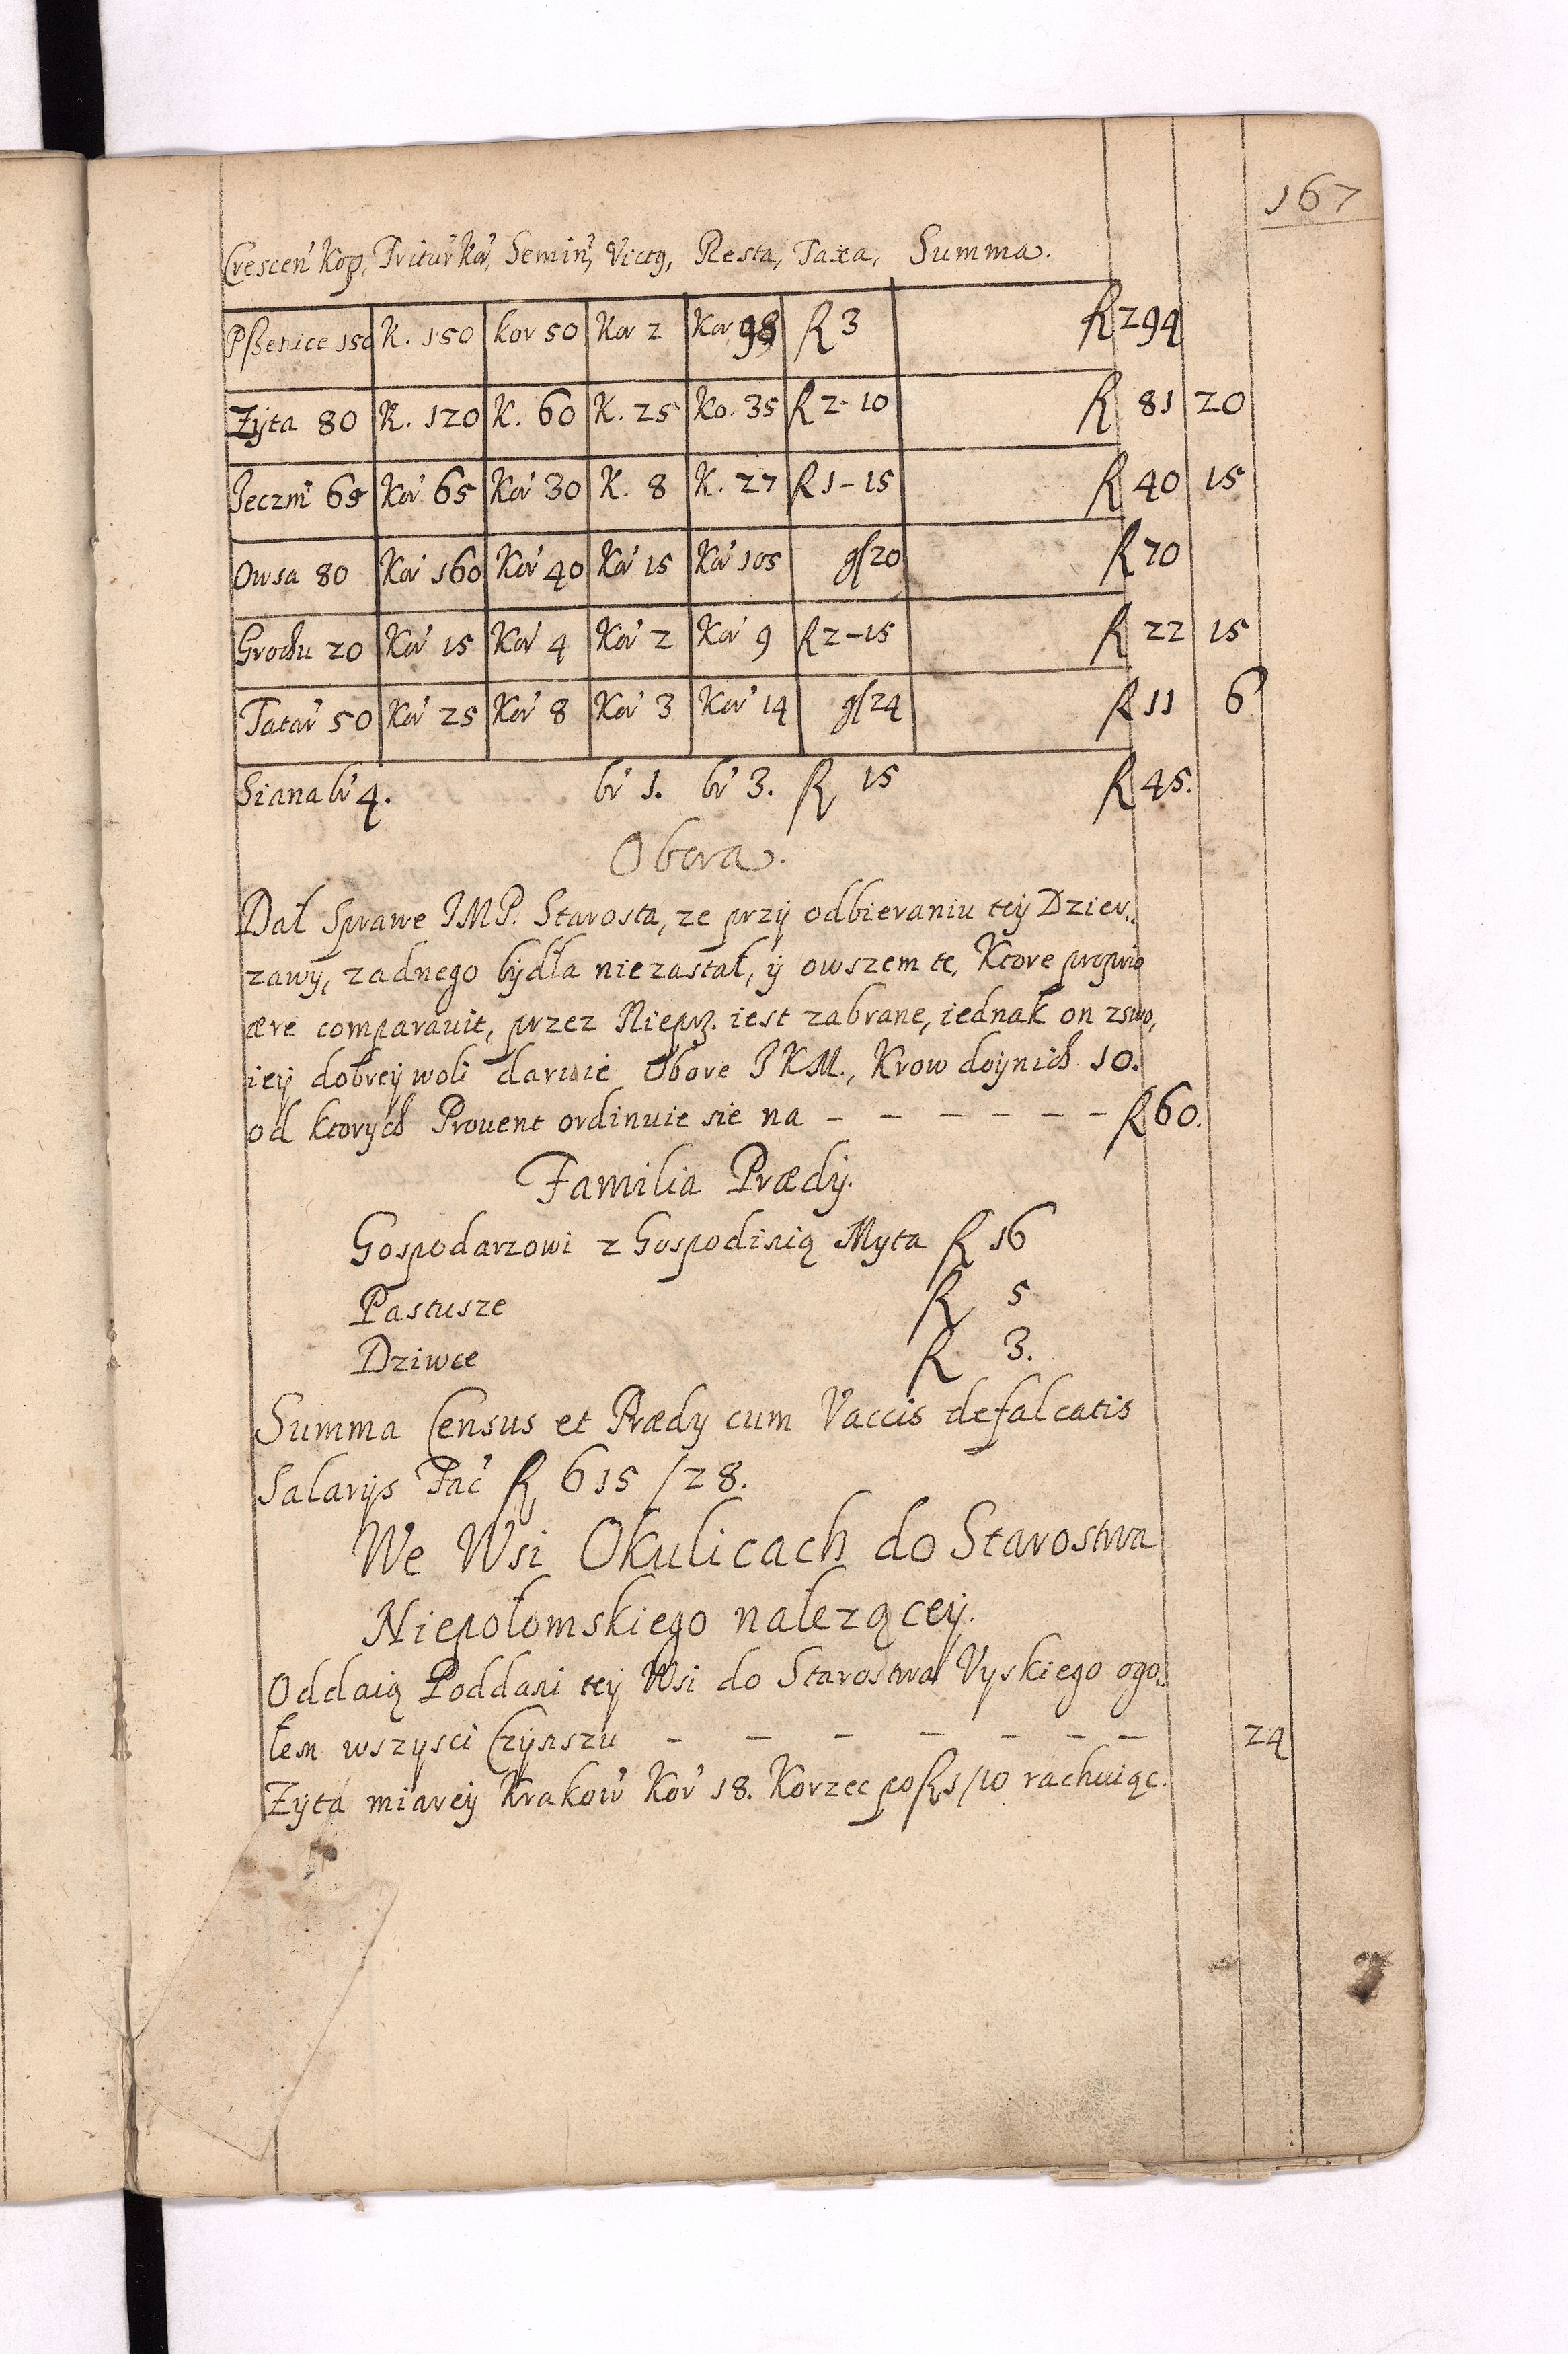 167
Crescen' Kop, Tritur' Kor', Semin', Vict9, Resta, Taxa, Summa.
Pßenice 150 K. 150 kor 50 Kor 2 Kor 98 fl 3 fl 294
Zÿta 80 K. 120 K. 60 K. 25 Ko. 35 fl 2-10 fl 81 20
Jeczm' 65 Kor' 65 Kor' 30 K. 8 K. 27 fl 1-15 fl 40 15
Owsa 80 Kor' 160 Kor' 40 Kor' 15 Kor' 105 gſ 20 fl 70
Grochu 20 Kor' 15 Kor' 4 Kor' 2 Kor' 9 fl 2-15 fl 22 15
Tatar' 50 Kor' 25 Kor' 8 Kor' 3 Kor' 14 gſ 24 fl 11 6
Siana br' 4. br' 1. br' 3. fl 15 fl 45.
Obora.
Dał Sprawe JMP. Starosta, ze przÿ odbieraniu teÿ Dzier,,
zawy, zadnego bÿdła niezastał, ÿ owszem te, Ktore proprio
ære comparauit, przez Nieprz. iest zabrane, iednak on zswo,
ieÿ dobreÿ woli daruie Obore JKM., Krow doÿnich 10.
od ktorych Prouent ordinuie sie na - - - - - - fl 60.
Familia Prædij.
Gospodarzowi z Gospodinią Myta fl 16
Pastusze fl 5
Dziwce fl 3.
Summa Census et Prædij cum Vaccis defalcatis
Salarijs Fac' fl 615/28.
We Wsi Okulicach do Starostwa
Niepołomskiego nalezącey.
Oddaią Poddani teÿ Wsi do Starostwa Vyskiego ogo,,
łem wszysci Czÿnszu - - - - - - - 24
Zÿta miareÿ Krakow' Kor' 18. Korzec po fl 1/10 rachuiąc.